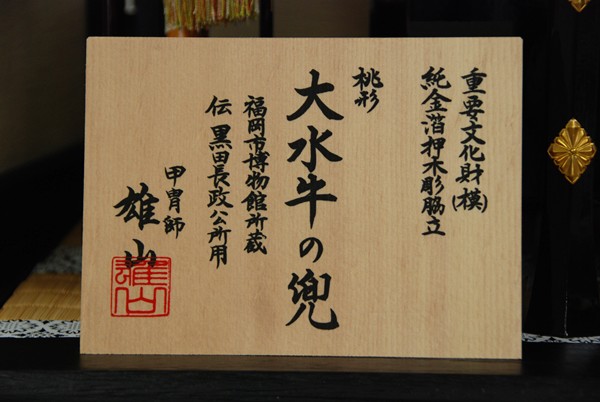 重要文化財(模)
純金箔押木彫脇立
桃形
大水牛の兜
福岡市博物館所蔵
伝 黒田長政公所用
甲冑師
雄山
雄山